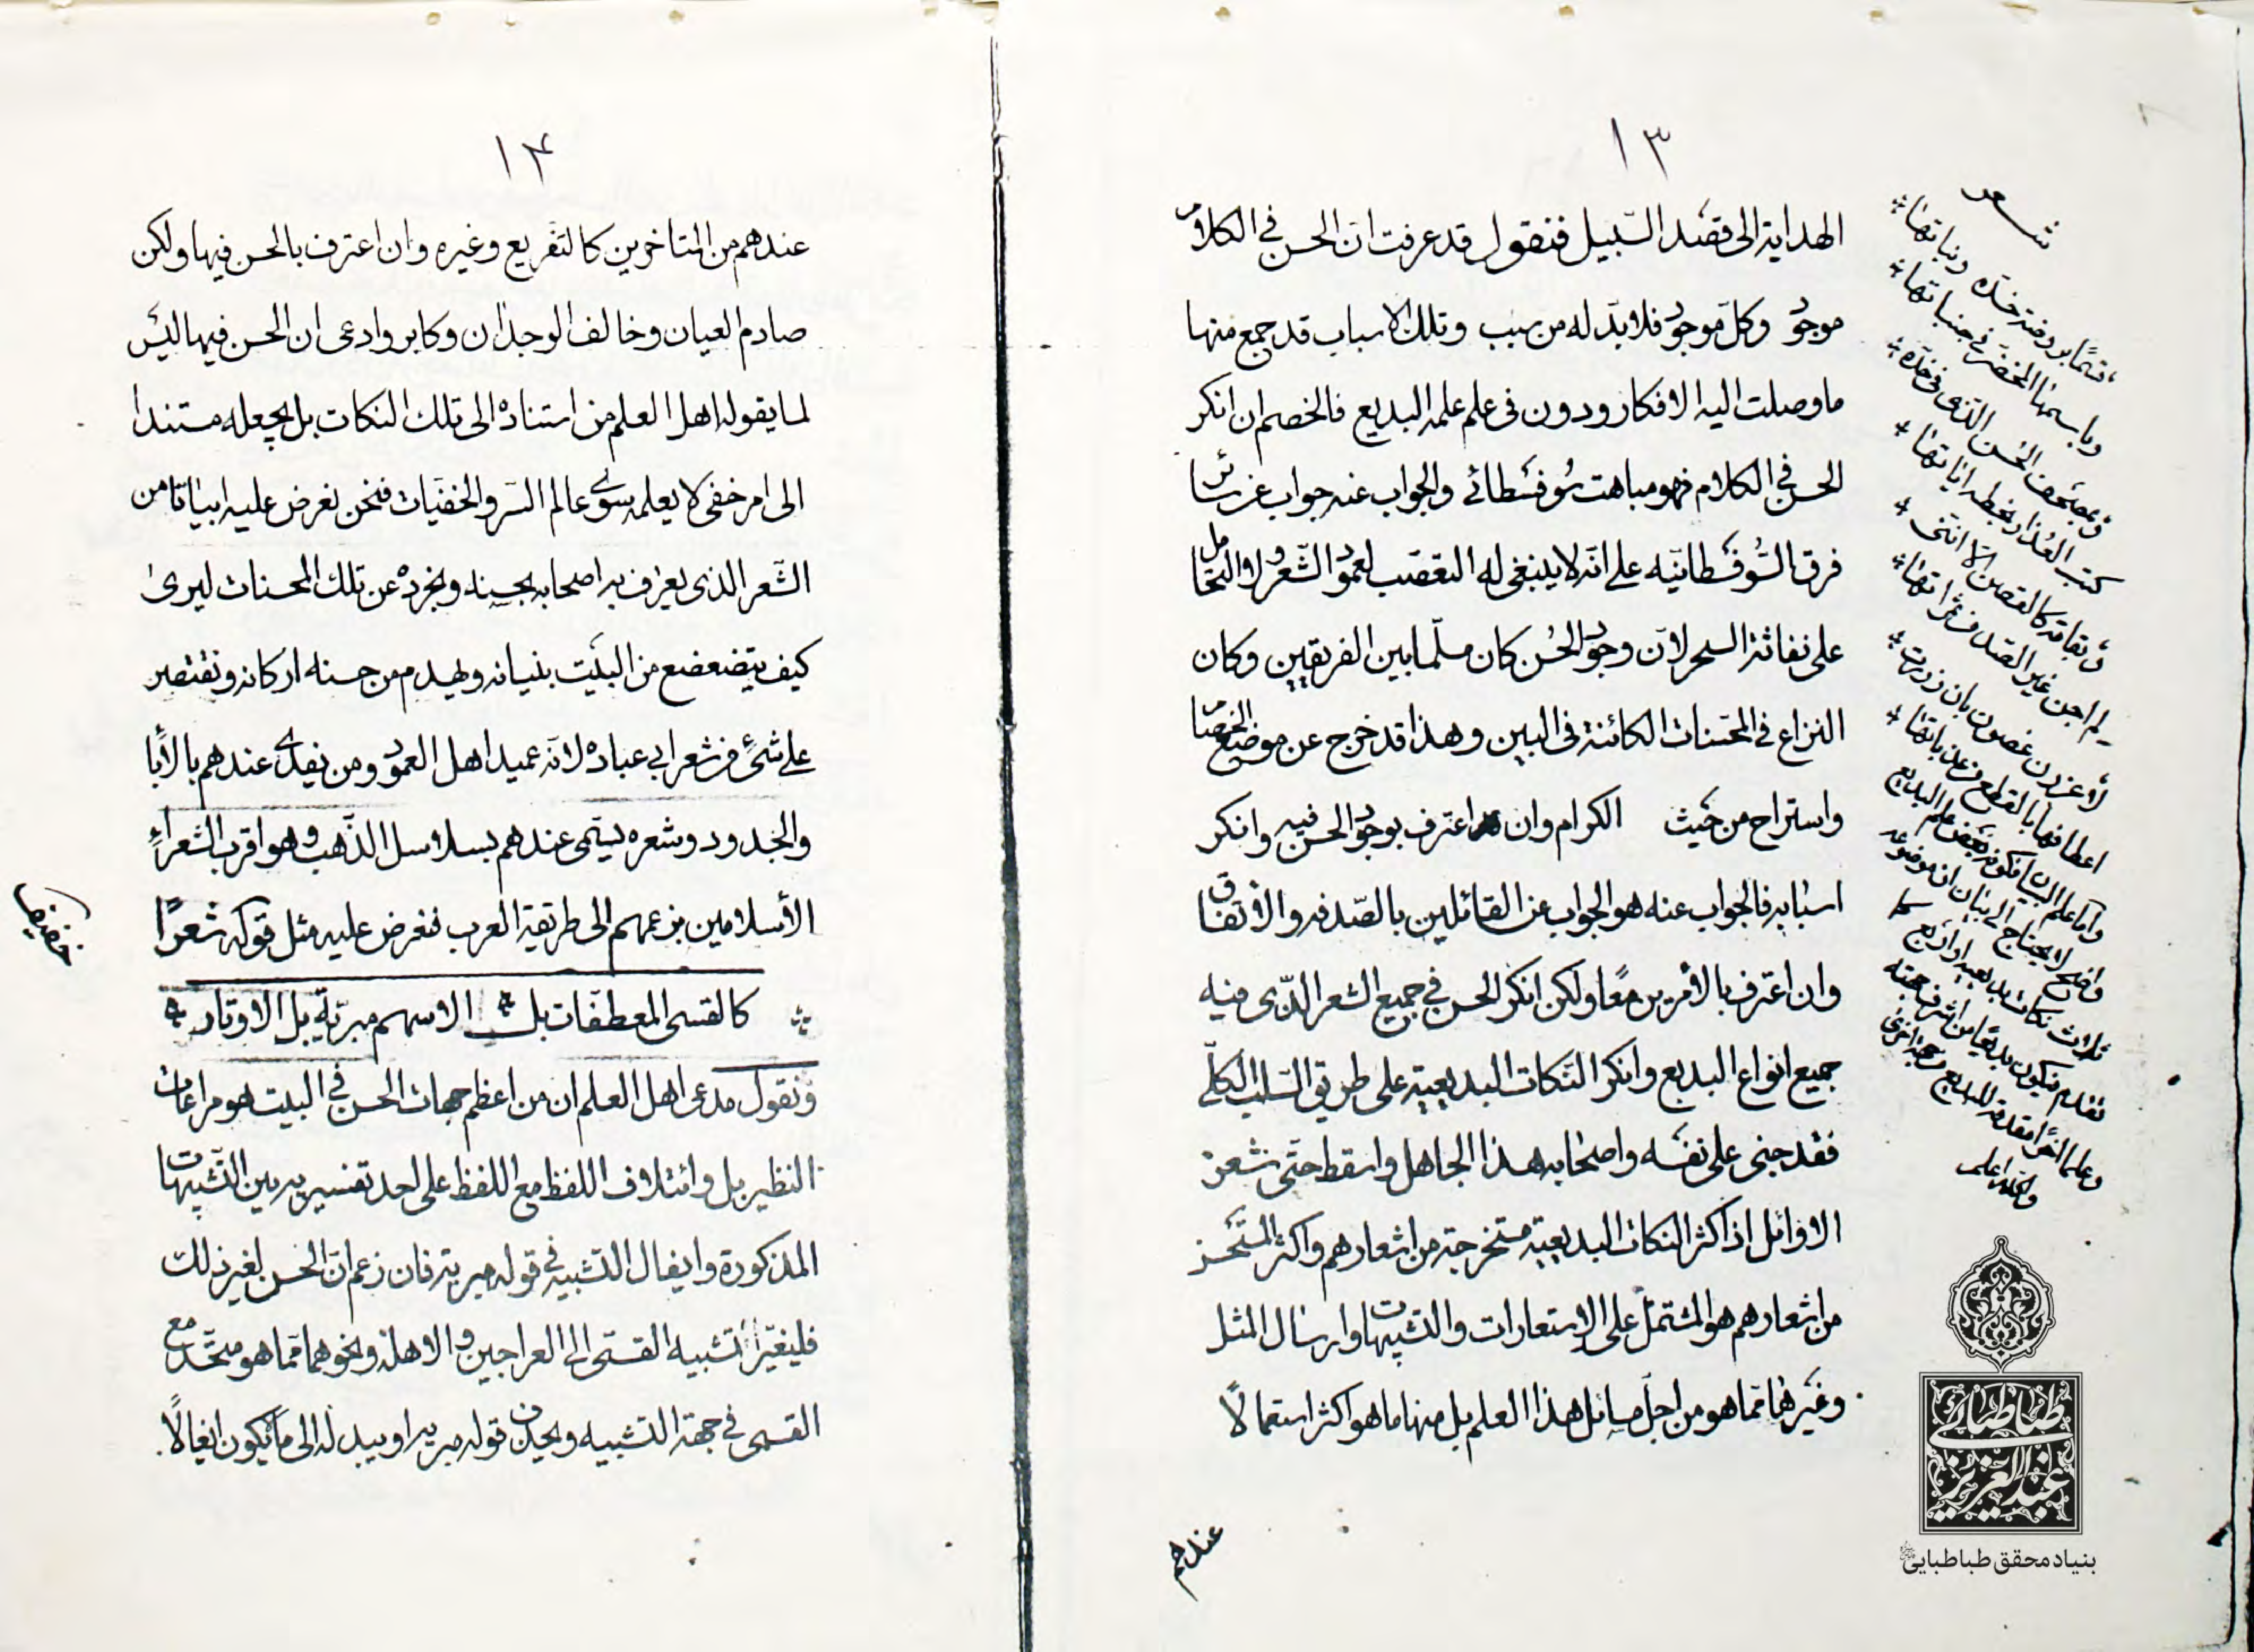 ١٣
الهداية الى قصد السّبيل فنقول قد عرفت انّ الحسن فى الكلام
موجود وكلّ موجود فلا بدّ له من سبب وتلك الاسباب قد جمع منها
ما وصلت اليه الافكار ودون فى علم علمه البديع فالخصم ان انكر
الحسن فى الكلام فهو مباهت سُوفسطائى والجواب عنه جواب عن سائر
فرق السُّوفسطائيّه على انّه لا ينبغى له التعصّب لعمود الشّعر والتحامل
على نفاثة السحر لانّ وجود الحُسن كان مسلّما بين الفريقين وكان
النزاع فى المحسّنات الكائنة فى البين وهذا قد خرج عن موضع الخصام
واستراح من حيث الكرام وان اعترف بوجود الحسن فيه وانكر
اسبابه فالجواب عنه هو الجواب عن القائلين بالصّدفه والاتفاق
وان اعترف بالأمرين معًا ولكن انكر الحسن فى جميع الشعر الذّى فيه
جميع انواع البديع وانكر النّكات البديعيّه على طريق السّلب الكلّى
فقد جنى على نفسه واصحابه هذا الجاهل واسقط حتّى شعر
الاوائل اذ اكثر النكات البديعيّه مستخرجة من اشعارهم واكثر المستحسن
من اشعارهم هو المشتمل على الاستعارات والتشبيهات وارسال المثل
وغيرها ممّا هو من اجلّ مسائل هذا العلم بل منها ما هو اكثر استعمالًا
عندهم
شعر
قسمًا بروضة خدّه ونباتها
وباسمها المخضر فى جنباتها
وبصحف الحُسن الذى فى خدّه
كتب العُذار بخطه اياتها
وبقامة كالغصن الّا انّنى
لم اجن غير الصّد من ثمراتها
لأعزرن غصون بان زورت
اعطافها بالقطع من عذباتها
واما علم البيان فكونه بعض علم البديع
واضح لا يحتاج الى بيان ان موضوعه
ثلاث نكات بديعيه او اربع كما
تقدم فيكون بديعًا من اشرف جهته
والله اعلم
١۴
عندهم من المتاخرين كالتفريع وغيره وان اعترف بالحسن فيها ولكن
صادم العيان وخالف الوجدان وكابر وادعى ان الحسن فيها ليس
لما يقوله اهل العلم من استناده الى تلك النكات بل يجعله مستندا
الى امر خفى لا يعلمه سوى عالم السّر والخفيّات فنحن نعرض عليه ابياتًا من
الشّعر الذى يعترف به اصحابه بحسنه ونجرده عن تلك المحسنات ليرى
كيف يتضعضع من البيت بنيانه ويهدم من حسنه اركانه ونقتصر
على شئٍ من شعر ابى عباده لانّه عميد اهل العمود ومن يفدى عندهم بالأبا
والجدود وشعره يسمّى عندهم بسلاسل الذّهب وهو اقرب الشعراء
الأسلامين بزعمهم الى طريقة العرب فنعرض عليه مثل قوله شعرًا
كالقسى المعطفات بل الاسهم مبريّة بل الاوتار
ونقول مدعى اهل العلم ان من اعظم جهات الحسن فى البيت هو مراعات
النظير بل وائتلاف اللفظ مع اللفظ على احد تفسيريه بين التّشبيهات
المذكورة وايغال التشبيه فى قوله مبرية فان زعم انّ الحسن لغير ذلك
فليغيّر تشبيه القسّى الى العراجين والاهلة ونحوهما ممّا هو متّحد مع
القسى فى جهة التشبيه ويحذف قوله مبريه او يبدله الى ما يكون ايغالًا
بنیاد محقق طباطبایی